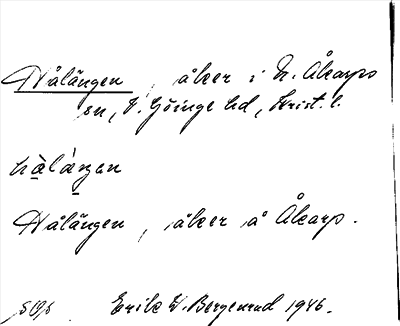 Hålängen, åker i N. Åkarps
sn, V. Göinge hd, Krist. l.
Hålängen, åker å Åkarp.
Erik W. Bergenrud 1946.